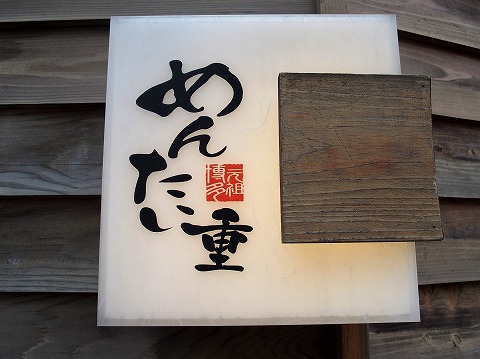 めんたい重
元祖
博多